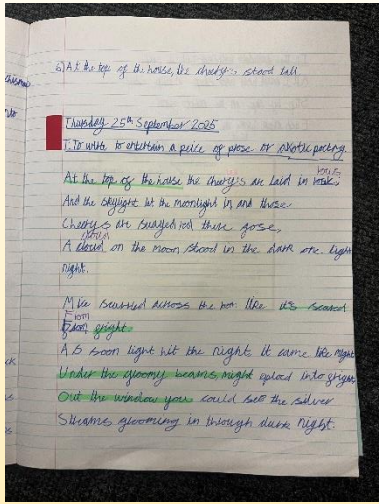 6) At the top of the house, the cherry's stood tall
Thursday 25th September 2025
I: To write to entertain a peice of prose or poetry
At the top of the house the cherry's are laid in rows,
And the skylight let the moonlight in and those
Cherry's are these gose,
A cloud on the moon stood in the dark one light
night.
Mice scurried across the like it's scared
From gright.
As soon light hit the night it came like night
Under the gloomy beams night into gright
Out the window you could see the silver
Streams glooming in through dark night.